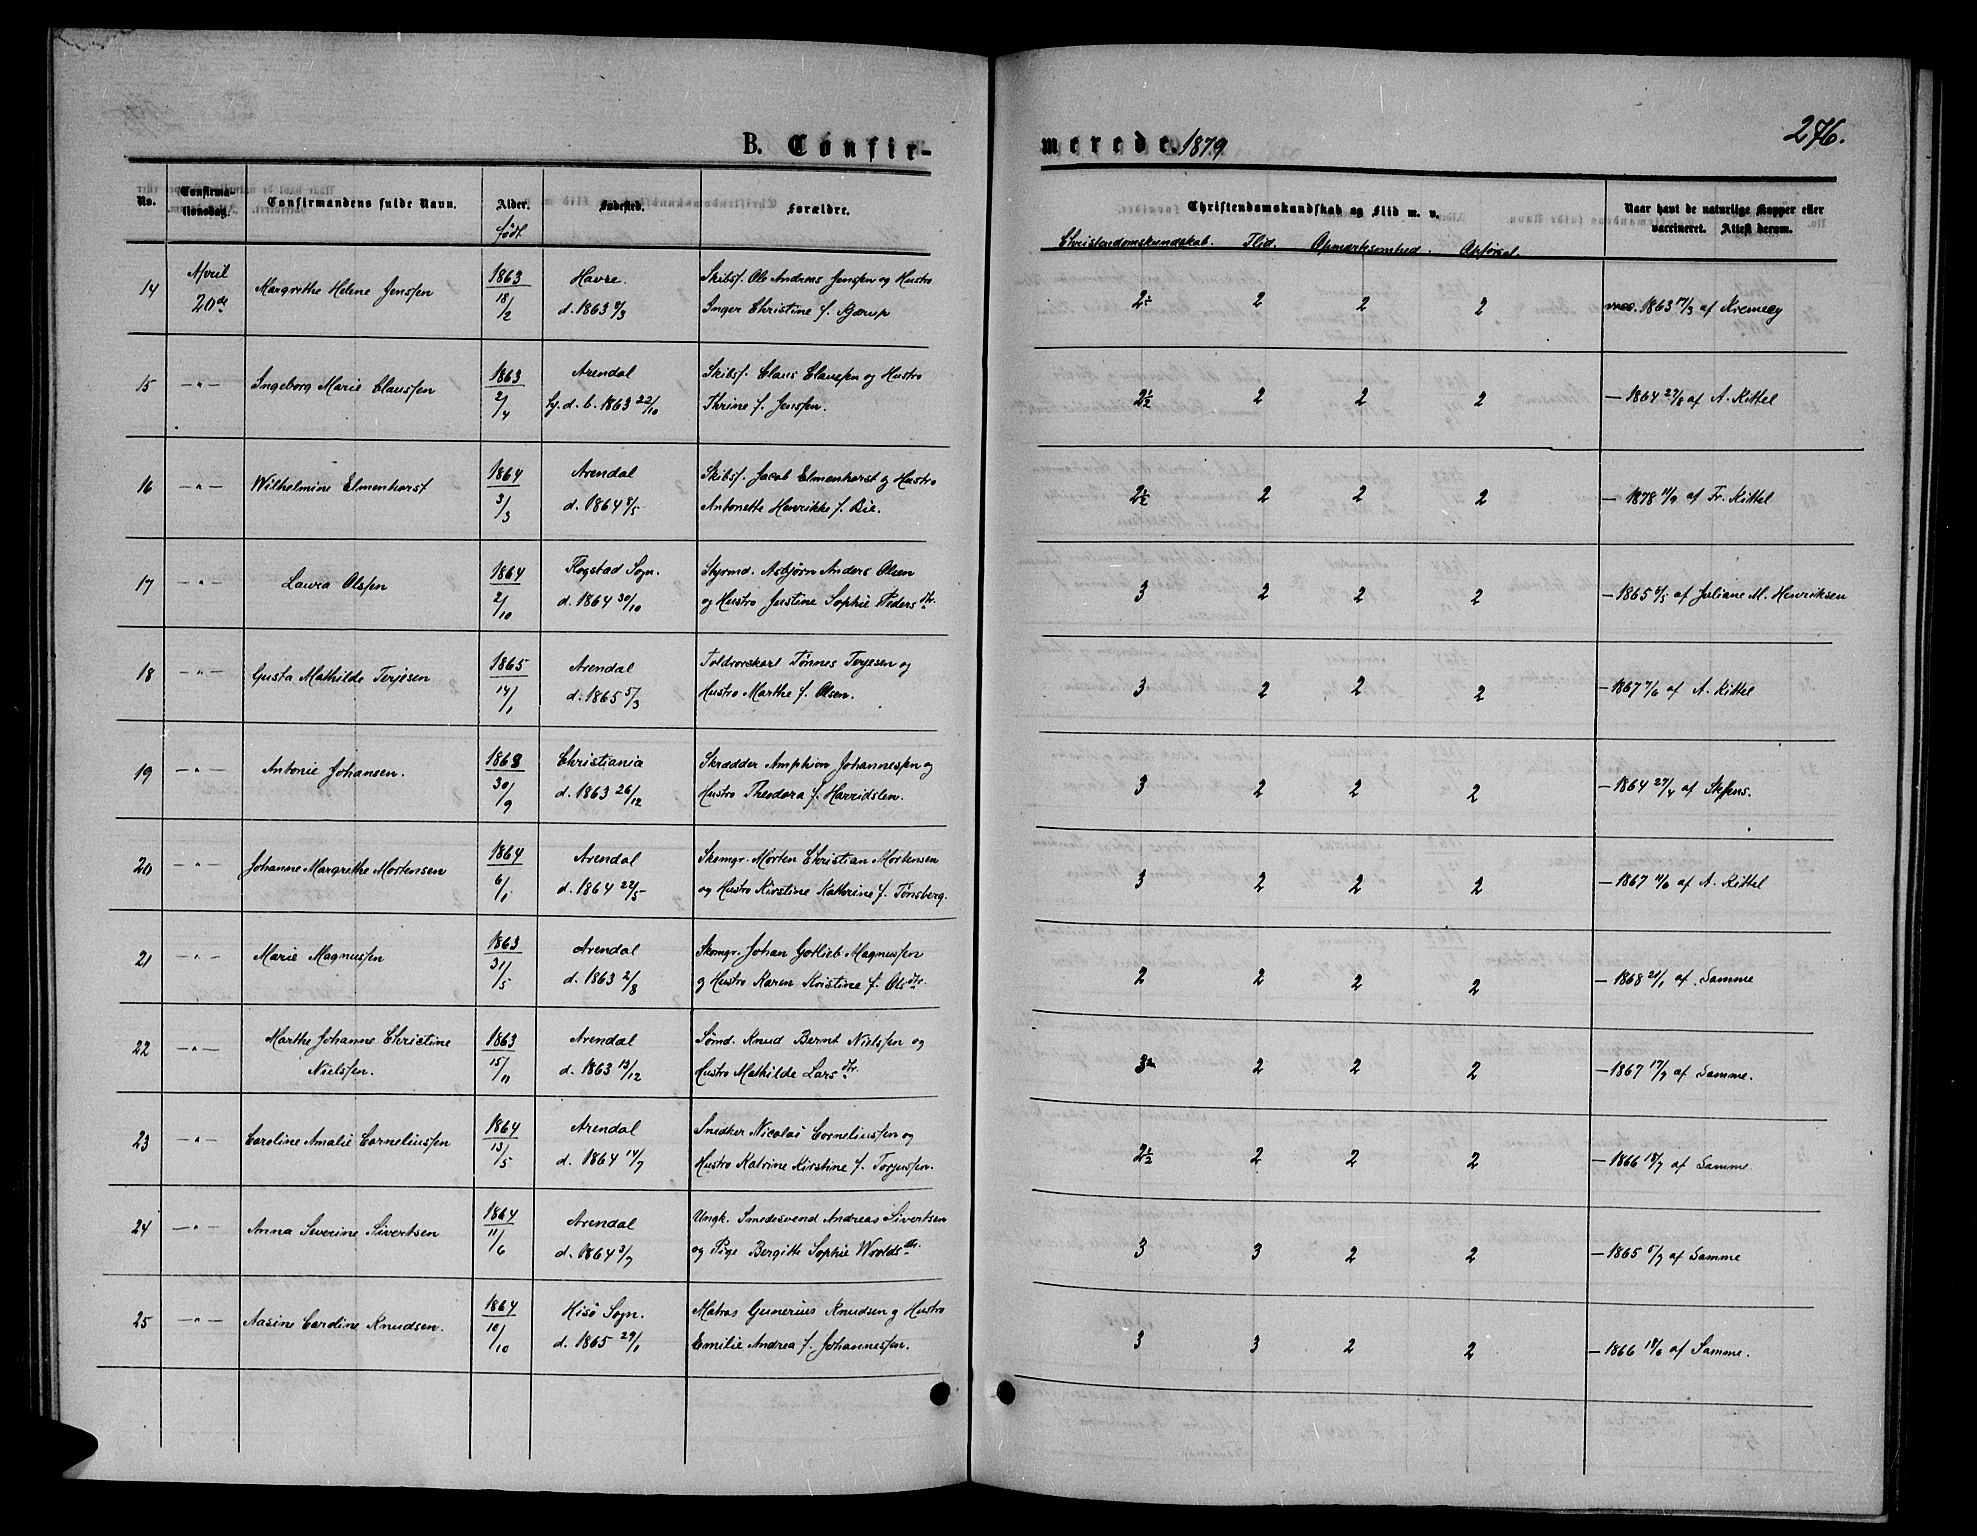 276.
B. Confir-
merede. 1879
No.
Confirma-
tionsdag.
Confirmandens fulde Navn.
Alder.
født
Fødested.
Forældre.
Christendomskundskab og Flid m. v.
Christendomskundskab. Flid. Opmærksomhed. Opførsel.
Naar havt de naturlige Kopper eller
vaccineret. Attest derom.
14 April 20de Margrethe Helene Jenssen 1863 18/2 Havre.
d. 1863 8/3
Skibsf. Ole Andreas Jenssen og Hustro
Inger Christine f. Kjærup
2½ 2 2 2 vacc. 1863 17/3 af
15 —"— Ingeborg Marie Claussen 1863 2/4 Arendal
hj. d. b. 1863 22/10
Skibsf. Claus Claussen og Hustro
Thrine f. Jenssen.
2½ 2 2 2 — 1864 27/8 af A. Kittel
16 —"— Wilhelmine Elmenhorst 1864 3/3 Arendal
d. 1864 8/5
Skibsf. Jacob Elmenhorst og Hustro
Antonette Henrikke f. Bie.
2½ 2 2 2 — 1878 11/9 af Fr. Kittel
17 —"— Laura Olssen 1864 2/10 Flogstad Sogn.
d. 1864 30/10
Styrmd. Asbjørn Anders Olsen
og Hustro Justine Sophie Pedersdtr.
3 2 2 2 — 1865 6/5 af Juliane M. Henriksen
18 —"— Gusta Mathilde Terjesen 1865 14/1 Arendal
d. 1865 5/3
Toldrorskarl Tønnes Terjesen og
Hustro Marthe f. Olsen.
3 2 2 2 — 1867 7/6 af A. Kittel
19 —"— Antonie Johansen. 1863 30/9 Christiania
d. 1863 26/12
Skrædder Amphion Johannessen og
Hustro Theodora f. Harridslen.
3 2 2 2 — 1864 27/4 af Steffens.
20 —"— Johanne Margrethe Mortensen 1864 6/1 Arendal
d. 1864 22/5
Skomgr. Morten Christian Mortensen
og Hustro Kirstine Kathrine f. Tønsberg.
3 2 2 2 — 1867 11/6 af A. Kittel
21 —"— Marie Magnussen 1863 31/5 Arendal
d. 1863 2/8
Skomgr. Johan Gotlieb Magnussen
og Hustro Karen Kristine f. Olsdtr.
2 2 2 2 — 1868 21/1 af Samme
22 —"— Marthe Johanne Christine
Nielssen. 1863 15/11 Arendal
d. 1863 13/12
Sømd. Knud Bernt Nielssen og
Hustro Mathilde Larsdtr.
3 2 2 2 — 1867 17/7 af Samme.
23 —"— Caroline Amalie Corneliussen 1864 13/5 Arendal
d. 1864 14/7
Snedker Nicolai Corneliussen og
Hustro Katrine Kirstine f. Torjussen.
2½ 2 2 2 — 1866 18/7 af Samme
24 —"— Anna Severine Sivertsen 1864 11/6 Arendal
d. 1864 3/7
Ungk. Smedesvend Andreas Sivertsen
og Pige Bergitte Sophie Wroldsdtr.
3 3 2 2 — 1865 6/7 af Samme
25 —"— Aasine Caroline Knudsen. 1864 10/10 Hisø Sogn.
d. 1865 29/1
Matros Gunerius Knudsen og Hustro
Emilie Andrea f. Johannessen.
3 3 2 2 — 1866 18/6 af Samme.